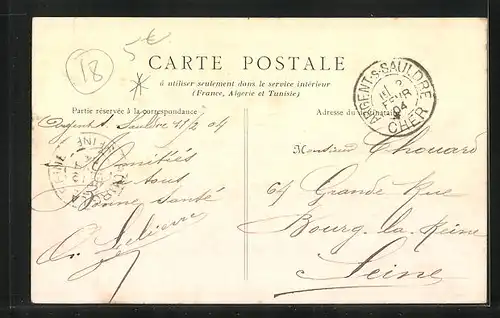 18
5€
CARTE POSTALE
à utiliser seulement dans le service intérieur
(France, Algérie et Tunisie)
Partie réservée à la correspondance
Adresse du destinataire
ARGENT-S-SAULDRE
2
FEVR
04
CHER
Argent s. Sauldre 11/2 04
Amitiés
à tous
Bonne Santé
Monsieur Thouard
64 Grande Rue
Bourg-la-Reine
Seine
SEINE